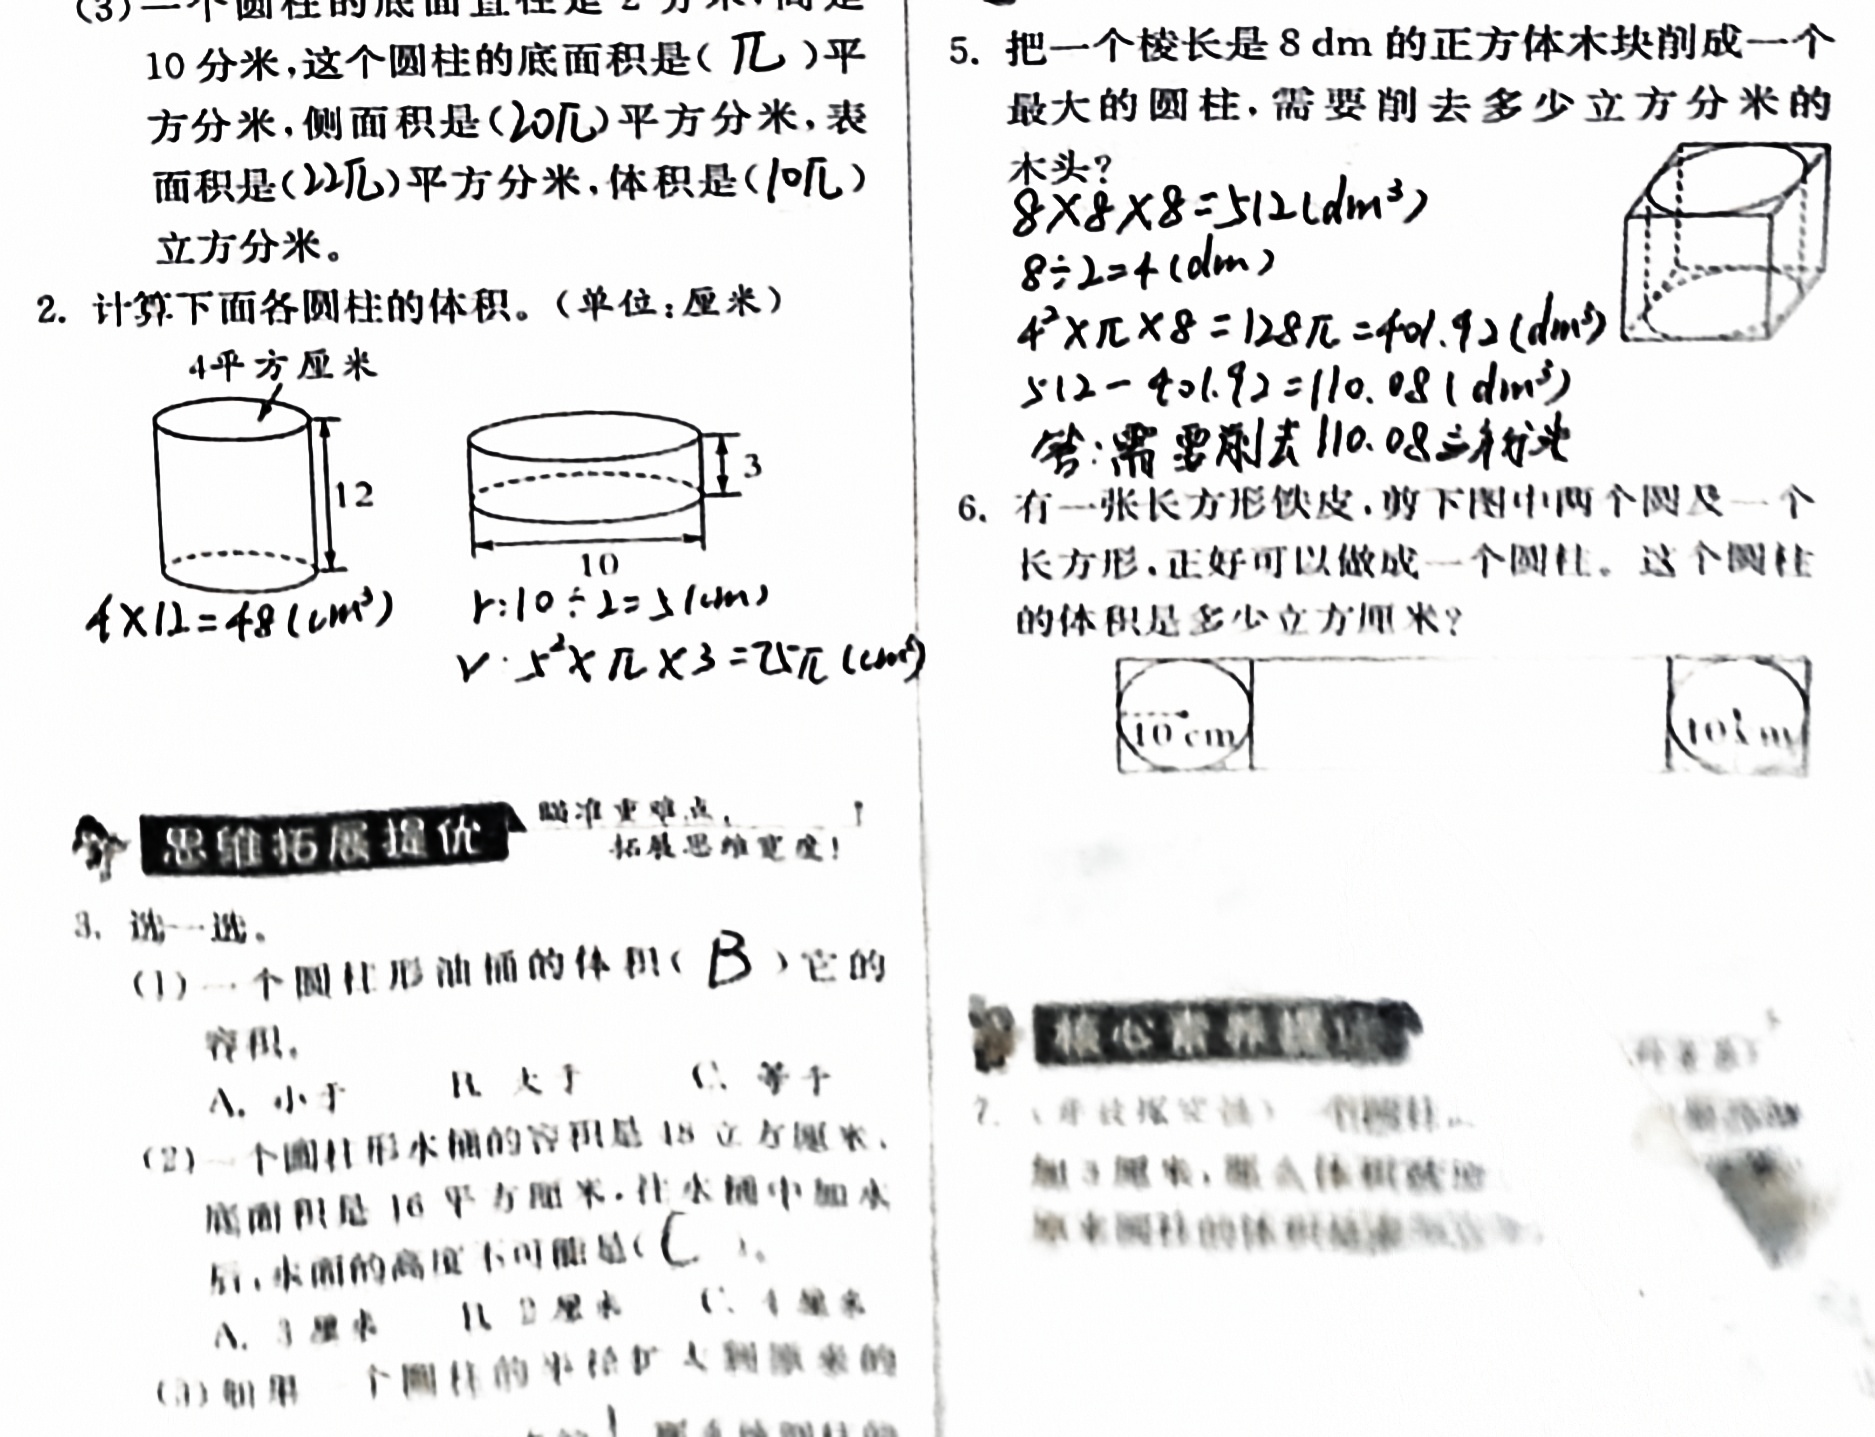 (3)一个圆柱的底面直径是2分米,高是
10分米,这个圆柱的底面积是(π)平
方分米,侧面积是(20π)平方分米,表
面积是(22π)平方分米,体积是(10π)
立方分米。
2. 计算下面各圆柱的体积。(单位:厘米)
4平方厘米
12
3
10
4×12=48(cm³)
r:10÷2=5(cm)
V:5²×π×3=75π(cm³)
思维拓展提优
瞄准重难点,
拓展思维宽度!
3. 选一选。
(1)一个圆柱形油桶的体积(B)它的
容积。
A. 小于 B. 大于 C. 等于
(2)一个圆柱形水桶的容积是48立方厘米,
底面积是16平方厘米,往水桶中加水
后,水面的高度不可能是(C)。
A. 3厘米 B. 2厘米 C. 4厘米
(3)如果一个圆柱的半径扩大到原来的
5. 把一个棱长是8 dm的正方体木块削成一个
最大的圆柱,需要削去多少立方分米的
木头?
8×8×8=512(dm³)
8÷2=4(dm)
4²×π×8=128π=401.92(dm³)
512-401.92=110.08(dm³)
答:需要削去110.08立方分米
6. 有一张长方形铁皮,剪下图中两个圆及一个
长方形,正好可以做成一个圆柱。这个圆柱
的体积是多少立方厘米?
10 cm
10 cm
核心素养提优
7.
加3厘米,那么体积就
原来圆柱的体积是